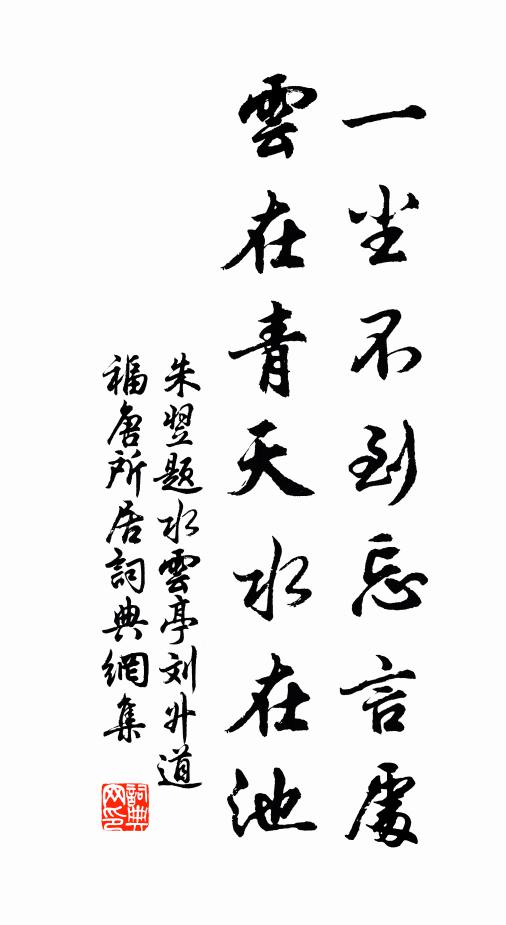 一尘不到忘言處
雲在青天水在池
朱翌题水雲亭刘升道
福唐所居詞典網集
詞典网印